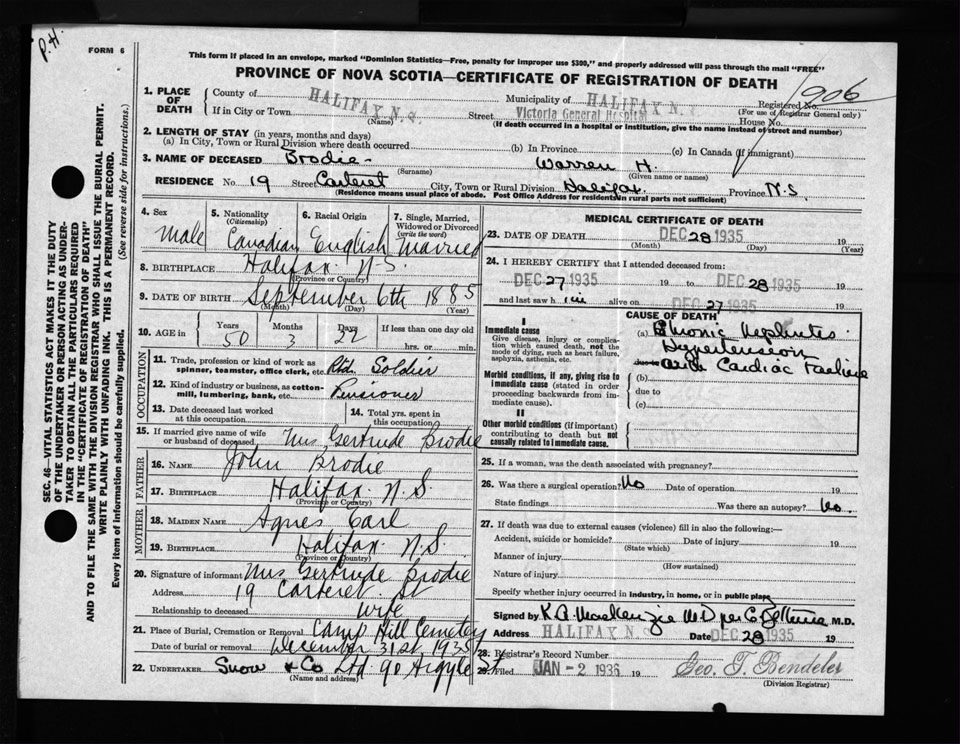 P.H.
FORM 6
This form if placed in an envelope, marked "Dominion Statistics—Free, penalty for improper use $300," and properly addressed will pass through the mail "FREE"
PROVINCE OF NOVA SCOTIA—CERTIFICATE OF REGISTRATION OF DEATH
1. PLACE OF DEATH
County of HALIFAX N.S. Municipality of HALIFAX N.S. Registered No. 906
(For use of Registrar General only)
If in City or Town (Name) Street Victoria General Hospital House No.
(If death occurred in a hospital or institution, give the name instead of street and number)
2. LENGTH OF STAY (in years, months and days)
(a) In City, Town or Rural Division where death occurred (b) In Province (c) In Canada (if immigrant)
3. NAME OF DECEASED Brodie- Warren H.
(Surname) (Given name or names)
RESIDENCE No 19 Street Carteret City, Town or Rural Division Halifax. Province N.S
(Residence means usual place of abode. Post Office Address for residents in rural parts not sufficient)
4. Sex Male
5. Nationality (Citizenship) Canadian
6. Racial Origin English
7. Single, Married, Widowed or Divorced (write the word) Married
8. BIRTHPLACE Halifax N.S.
(Province or Country)
9. DATE OF BIRTH September 6th 1885
(Month) (Day) (Year)
10. AGE in Years Months Days If less than one day old
50 3 22 hrs. or min.
OCCUPATION
11. Trade, profession or kind of work as spinner, teamster, office clerk, etc. Rtd. Soldier
12. Kind of industry or business, as cotton-mill, lumbering, bank, etc. Pensioner
13. Date deceased last worked at this occupation
14. Total yrs. spent in this occupation
15. If married give name of wife or husband of deceased Mrs Gertrude Brodie
FATHER
16. NAME John Brodie
17. BIRTHPLACE Halifax N.S.
(Province or Country)
MOTHER
18. MAIDEN NAME Agnes Carl
19. BIRTHPLACE Halifax N.S.
(Province or Country)
20. Signature of informant Mrs Gertrude Brodie
Address 19 Carteret St
Relationship to deceased wife
21. Place of Burial, Cremation or Removal Camp Hill Cemetery
Date of burial or removal December 31st 1935
22. UNDERTAKER Snow & Co Ltd 90 Argyle St
(Name and address)
MEDICAL CERTIFICATE OF DEATH
23. DATE OF DEATH DEC 28 1935 19
(Month) (Day) (Year)
24. I HEREBY CERTIFY that I attended deceased from:
DEC 27 1935 19 to DEC 28 1935 19
and last saw h im alive on DEC 27 1935 19
CAUSE OF DEATH
I
Immediate cause
Give disease, injury or complication which caused death, not the mode of dying, such as heart failure, asphyxia, asthenia, etc.
(a) Chronic Nephritis.
Hypertension
with Cardiac Failure
Morbid conditions, if any, giving rise to immediate cause (stated in order proceeding backwards from immediate cause).
(b)
due to
(c)
II
Other morbid conditions (if important) contributing to death but not causally related to immediate cause
25. If a woman, was the death associated with pregnancy?
26. Was there a surgical operation? No Date of operation 19
State findings Was there an autopsy? No.
27. If death was due to external causes (violence) fill in also the following:—
Accident, suicide or homicide? Date of injury 19
(State which)
Manner of injury
(How sustained)
Nature of injury
Specify whether injury occurred in industry, in home, or in public place
Signed by K.A. MacKenzie M.D per M.D.
Address HALIFAX N.S. Date DEC 28 1935 19
28. Registrar's Record Number
29. Filed JAN - 2 1936 19 Geo. T. Bendeler
(Division Registrar)
SEC. 46—VITAL STATISTICS ACT MAKES IT THE DUTY
OF THE UNDERTAKER OR PERSON ACTING AS UNDER-
TAKER TO OBTAIN ALL THE PARTICULARS REQUIRED
IN THE "CERTIFICATE OF REGISTRATION OF DEATH"
AND TO FILE THE SAME WITH THE DIVISION REGISTRAR WHO SHALL ISSUE THE BURIAL PERMIT.
WRITE PLAINLY WITH UNFADING INK. THIS IS A PERMANENT RECORD.
Every item of information should be carefully supplied. (See reverse side for instructions.)